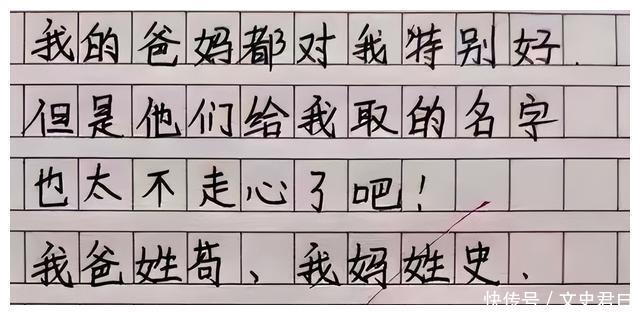 我的爸妈都对我特别好.
但是他们给我取的名字
也太不走心了吧！
我爸姓苟、我妈姓史.
快传号／文史君曰